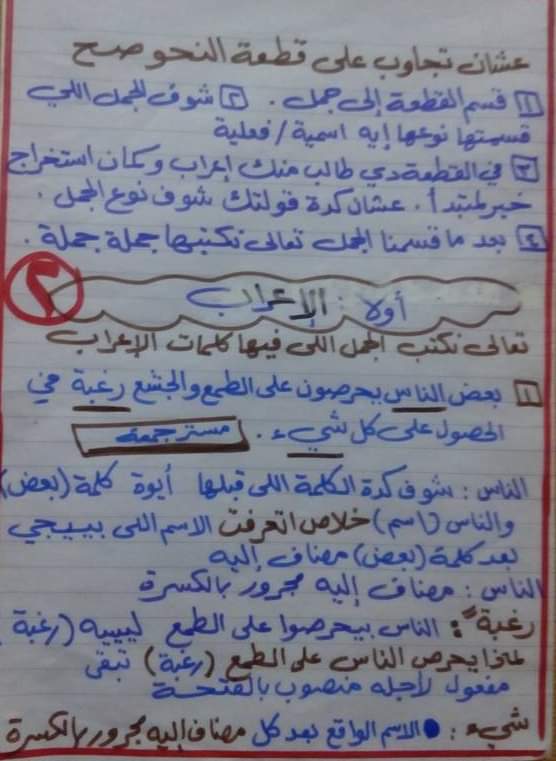 عشان تجاوب على قطعة النحو صح
١ قسم القطعة إلى جمل . ٢ شوف الجمل اللي
قسمتها نوعها إيه اسمية / فعلية
٣ في القطعة دي طالب منك إعراب وكمان استخراج
خبر لمبتدأ . عشان كدة قولتلك شوف نوع الجمل .
٤ بعد ما قسمنا الجمل تعالى نكتبها جملة جملة .
٢
أولا : الإعراب
تعالى نكتب الجمل اللى فيها كلمات الإعراب
١ بعض الناس يحرصون على الطمع والجشع رغبة في
الحصول على كل شيء . مستر جمعة
الناس : شوف كدة الكلمة اللى قبلها أيوة كلمة (بعض)
والناس (اسم) خلاص اتعرفت الاسم اللى بييجي
بعد كلمة (بعض) مضاف إليه
الناس : مضاف إليه مجرور بالكسرة
رغبة : الناس بيحرصوا على الطمع ليييه (رغبة)
لماذا يحرص الناس على الطمع (رغبة) تبقى
مفعول لأجله منصوب بالفتحة
شيء : الاسم الواقع بعد كل مضاف إليه مجرور بالكسرة